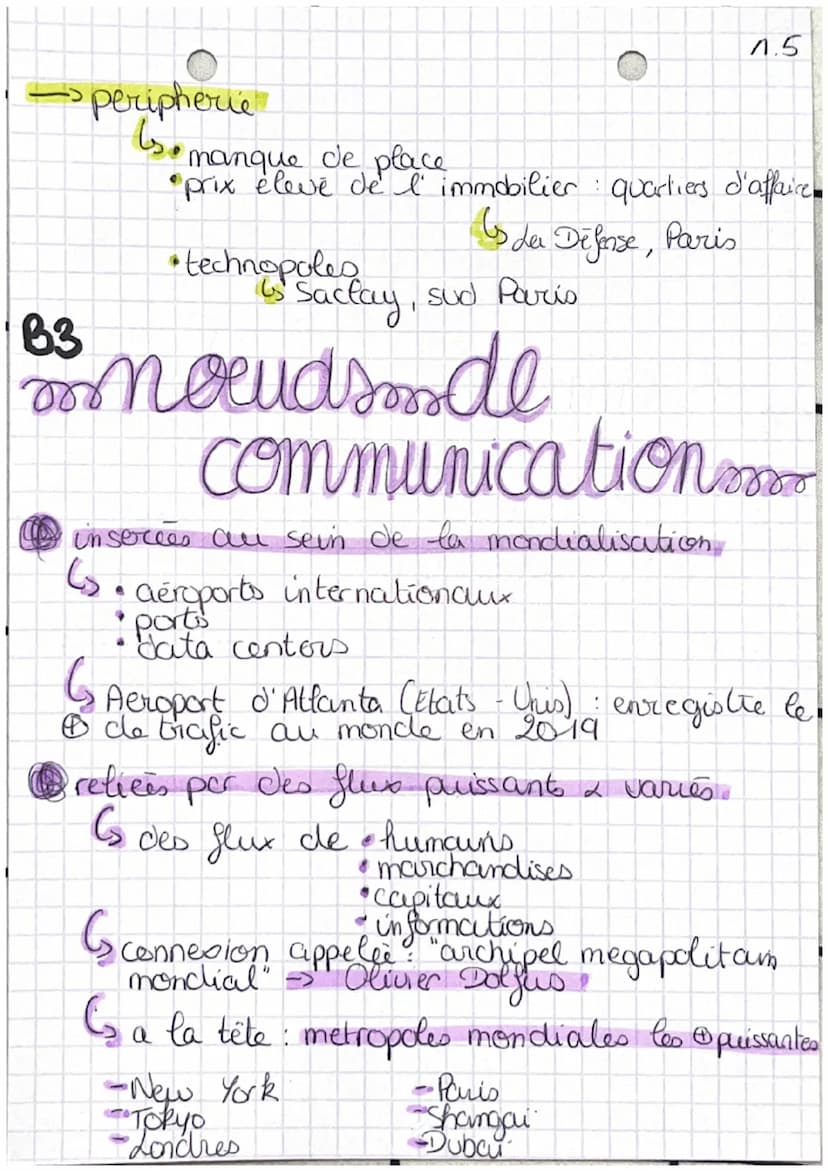 n.5
→ peripherie
↳ • manque de place
• prix élevé de l'immobilier : quartiers d'affaire
↳ La Défense, Paris
• technopoles
↳ Saclay, sud Paris
B3
noeuds de
communication
inserées au sein de la mondialisation
↳ • aéroports internationaux
• ports
• data centers
↳ Aeroport d'Atlanta (Etats - Unis) : enregistre le
⊕ de trafic au monde en 2019
reliées par des flux puissants & variés
↳ des flux de • humains
• marchandises
• capitaux
• informations
↳ connexion appelée : "archipel megapolitain
mondial" => Olivier Dolfus
↳ a la tête : metropoles mondiales les ⊕ puissantes
- New York - Paris
- Tokyo - Shangai
- Londres - Dubai